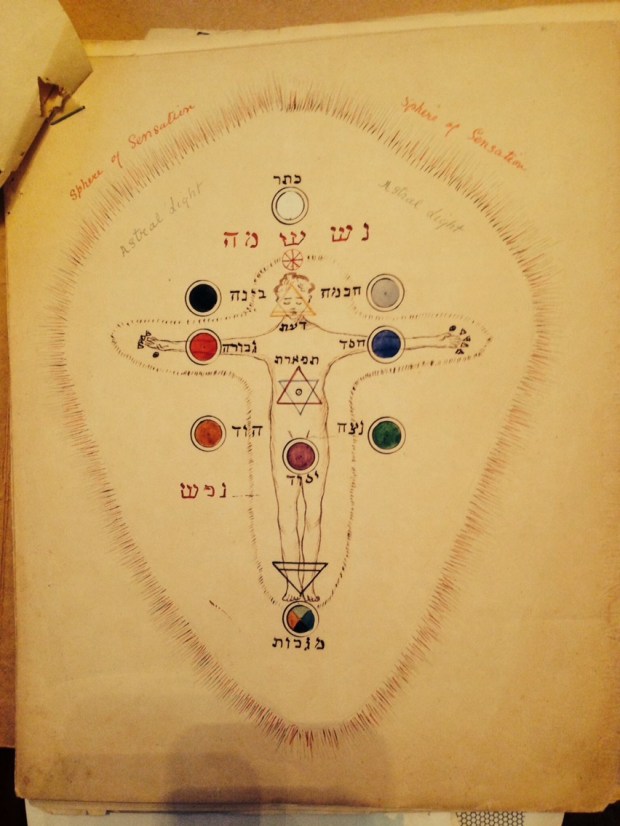 Sphere of Sensation
Sphere of Sensation
Astral Light
Astral Light
כתר
נש ש מה
חכמה
בינה
דעת
חסד
גבורה
תפארת
נצח
הוד
יסוד
נפש
מלכות